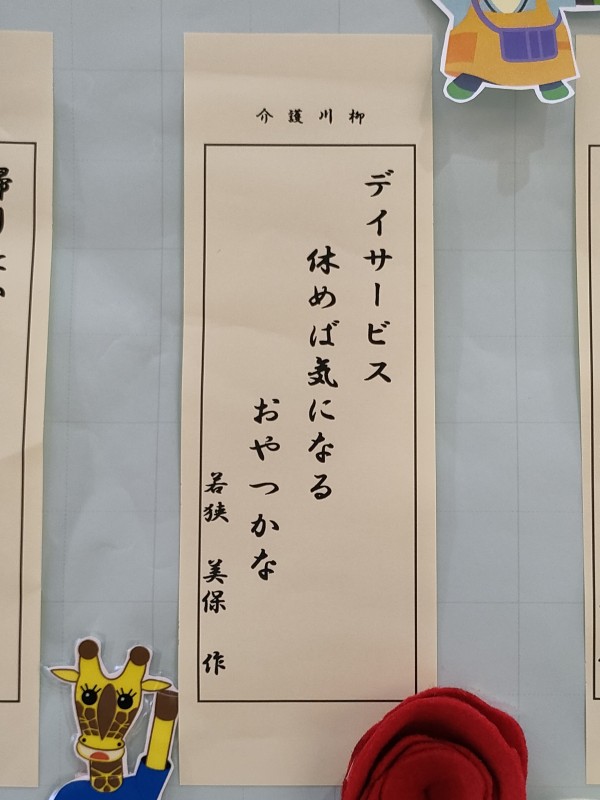 介護川柳
デイサービス
休めば気になる
おやつかな
若狭 美保 作
帰りたい